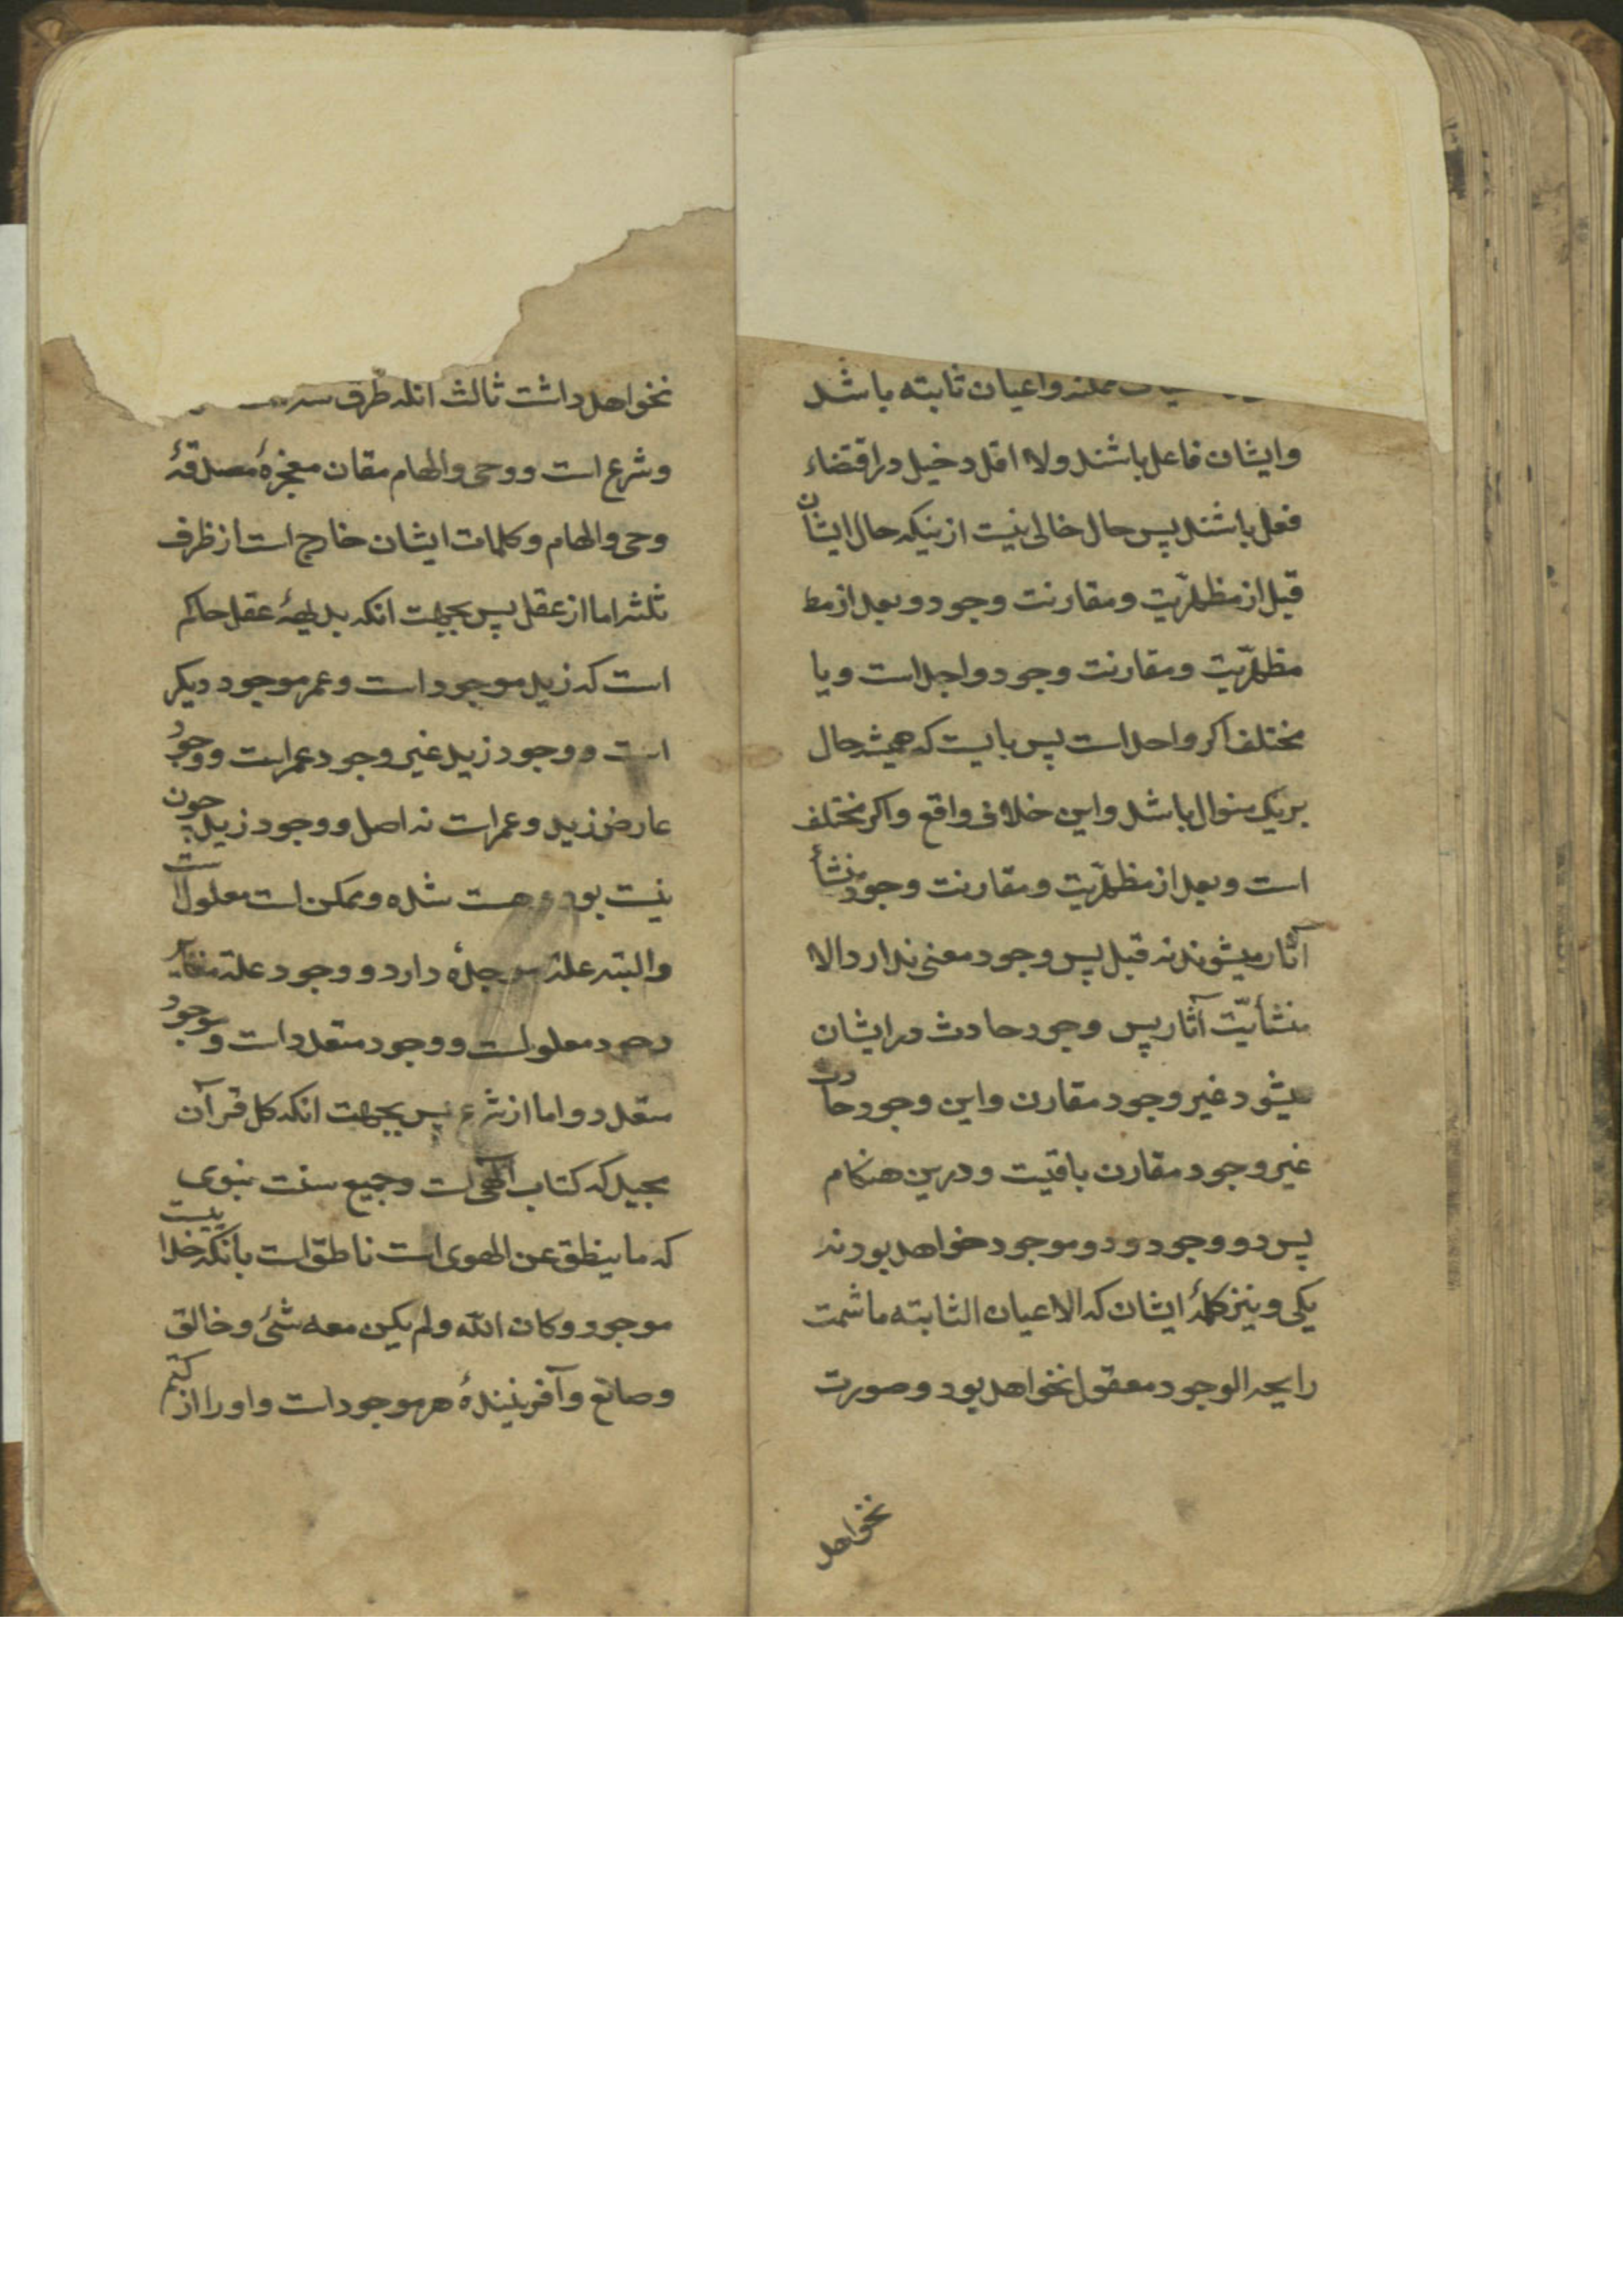 ممکنه واعیان ثابته باشد
وایشان فاعل باشند ولا اقل دخیل در اقتضاء
فعل باشند پس حال خالی نیست از ینکه حال ایشان
قبل از مظهریّت و مقارنت وجود و بعد از مظ
مظهریّت و مقارنت وجود واحد است و یا
مختلف اکر واحد است پس بایست که همیشه حال
بر یک منوال باشد و این خلاف واقع و اکر مختلف
است و بعد از مظهریّت و مقارنت وجود منشأ
آثار میشوند نه قبل پس وجود معنی ندارد الا
منشأیّت آثار پس وجود حادث در ایشان
میشود غیر وجود مقارن و این وجود حادث
غیر وجود مقارن باقیت و درین هنکام
پس دو وجود و دو موجود خواهد بود نه
یکی و نیز کلمهٔ ایشان که الاعیان الثابته ما شمت
رایحه الوجود معقول نخواهد بود و صورت
نخواهد
نخواهد داشت ثالث انکه طرق
و شرع است و وحی والهام مقان معجزهٔ مصدقهٔ
وحی والهام و کلمات ایشان خارج است از ظرف
ثلثه اما از عقل پس بجهت انکه بدیهۀ عقل حاکم
است که زید موجود است و عمر موجود دیکر
است و وجود زید غیر وجود عمر است و وجود
عارض زید و عمر است نه اصل و وجود زید چون
نیست بود و هست شده و ممکن است معلول است
والبته علة موجدهٔ دارد و وجود علة مغایر
وجود معلول است و وجود متعدد است و موجود
متعدد و اما از شرع پس بجهت انکه کل قرآن
مجید که کتاب الٓهی است و جمیع سنت نبوی
که ما ینطق عن الهوی است ناطق است بانکه خدا ییست
موجود و کان الله ولم یکن معه شئ و خالق
و صانع و آفرینندهٔ هر موجود است و او را از کتم